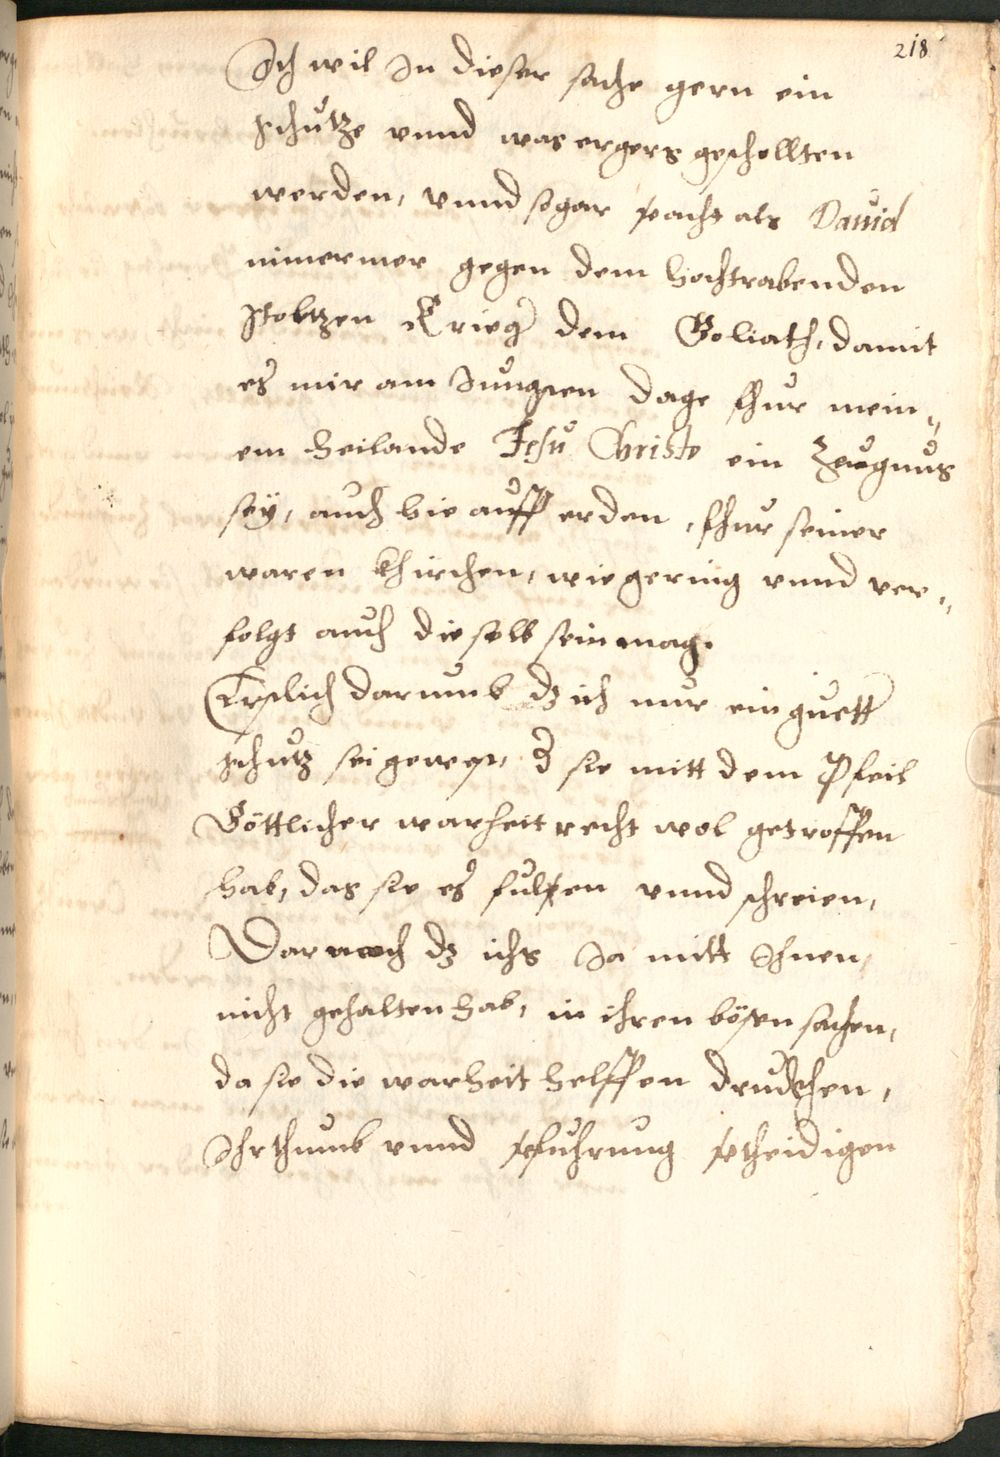 218
Ich wil In dieser sache gern ein
schütze vnnd was ergers geschollten
werden, vnnd sogar veracht als Dauid
nimermer gegen dem hochtrabenden
stoltzen Krieger dem Goliath, damit
es mir am Jungsten dage fhur mein„
em heilande Jesu Christo ein Zeugnus
sey, auch hie auff erden, fhur seiner
waren Khirchen, wie gering vnnd ver„
folgt auch dieselb sein mag.
Erstlich darumb dz ich nur ein guetter
schutz sei gewest, der sie mitt dem Pfeil
Göttlicher warheit recht wol getroffen
hab, das sie es fulhen vnnd schreien,
Darnach dz ichs Ja mitt Ihnen,
nicht gehalten hab, in ihren bösen sachen,
da sie die warheit helffen druckhen,
Ihrthumb vnnd verfuhrung vertheidigen